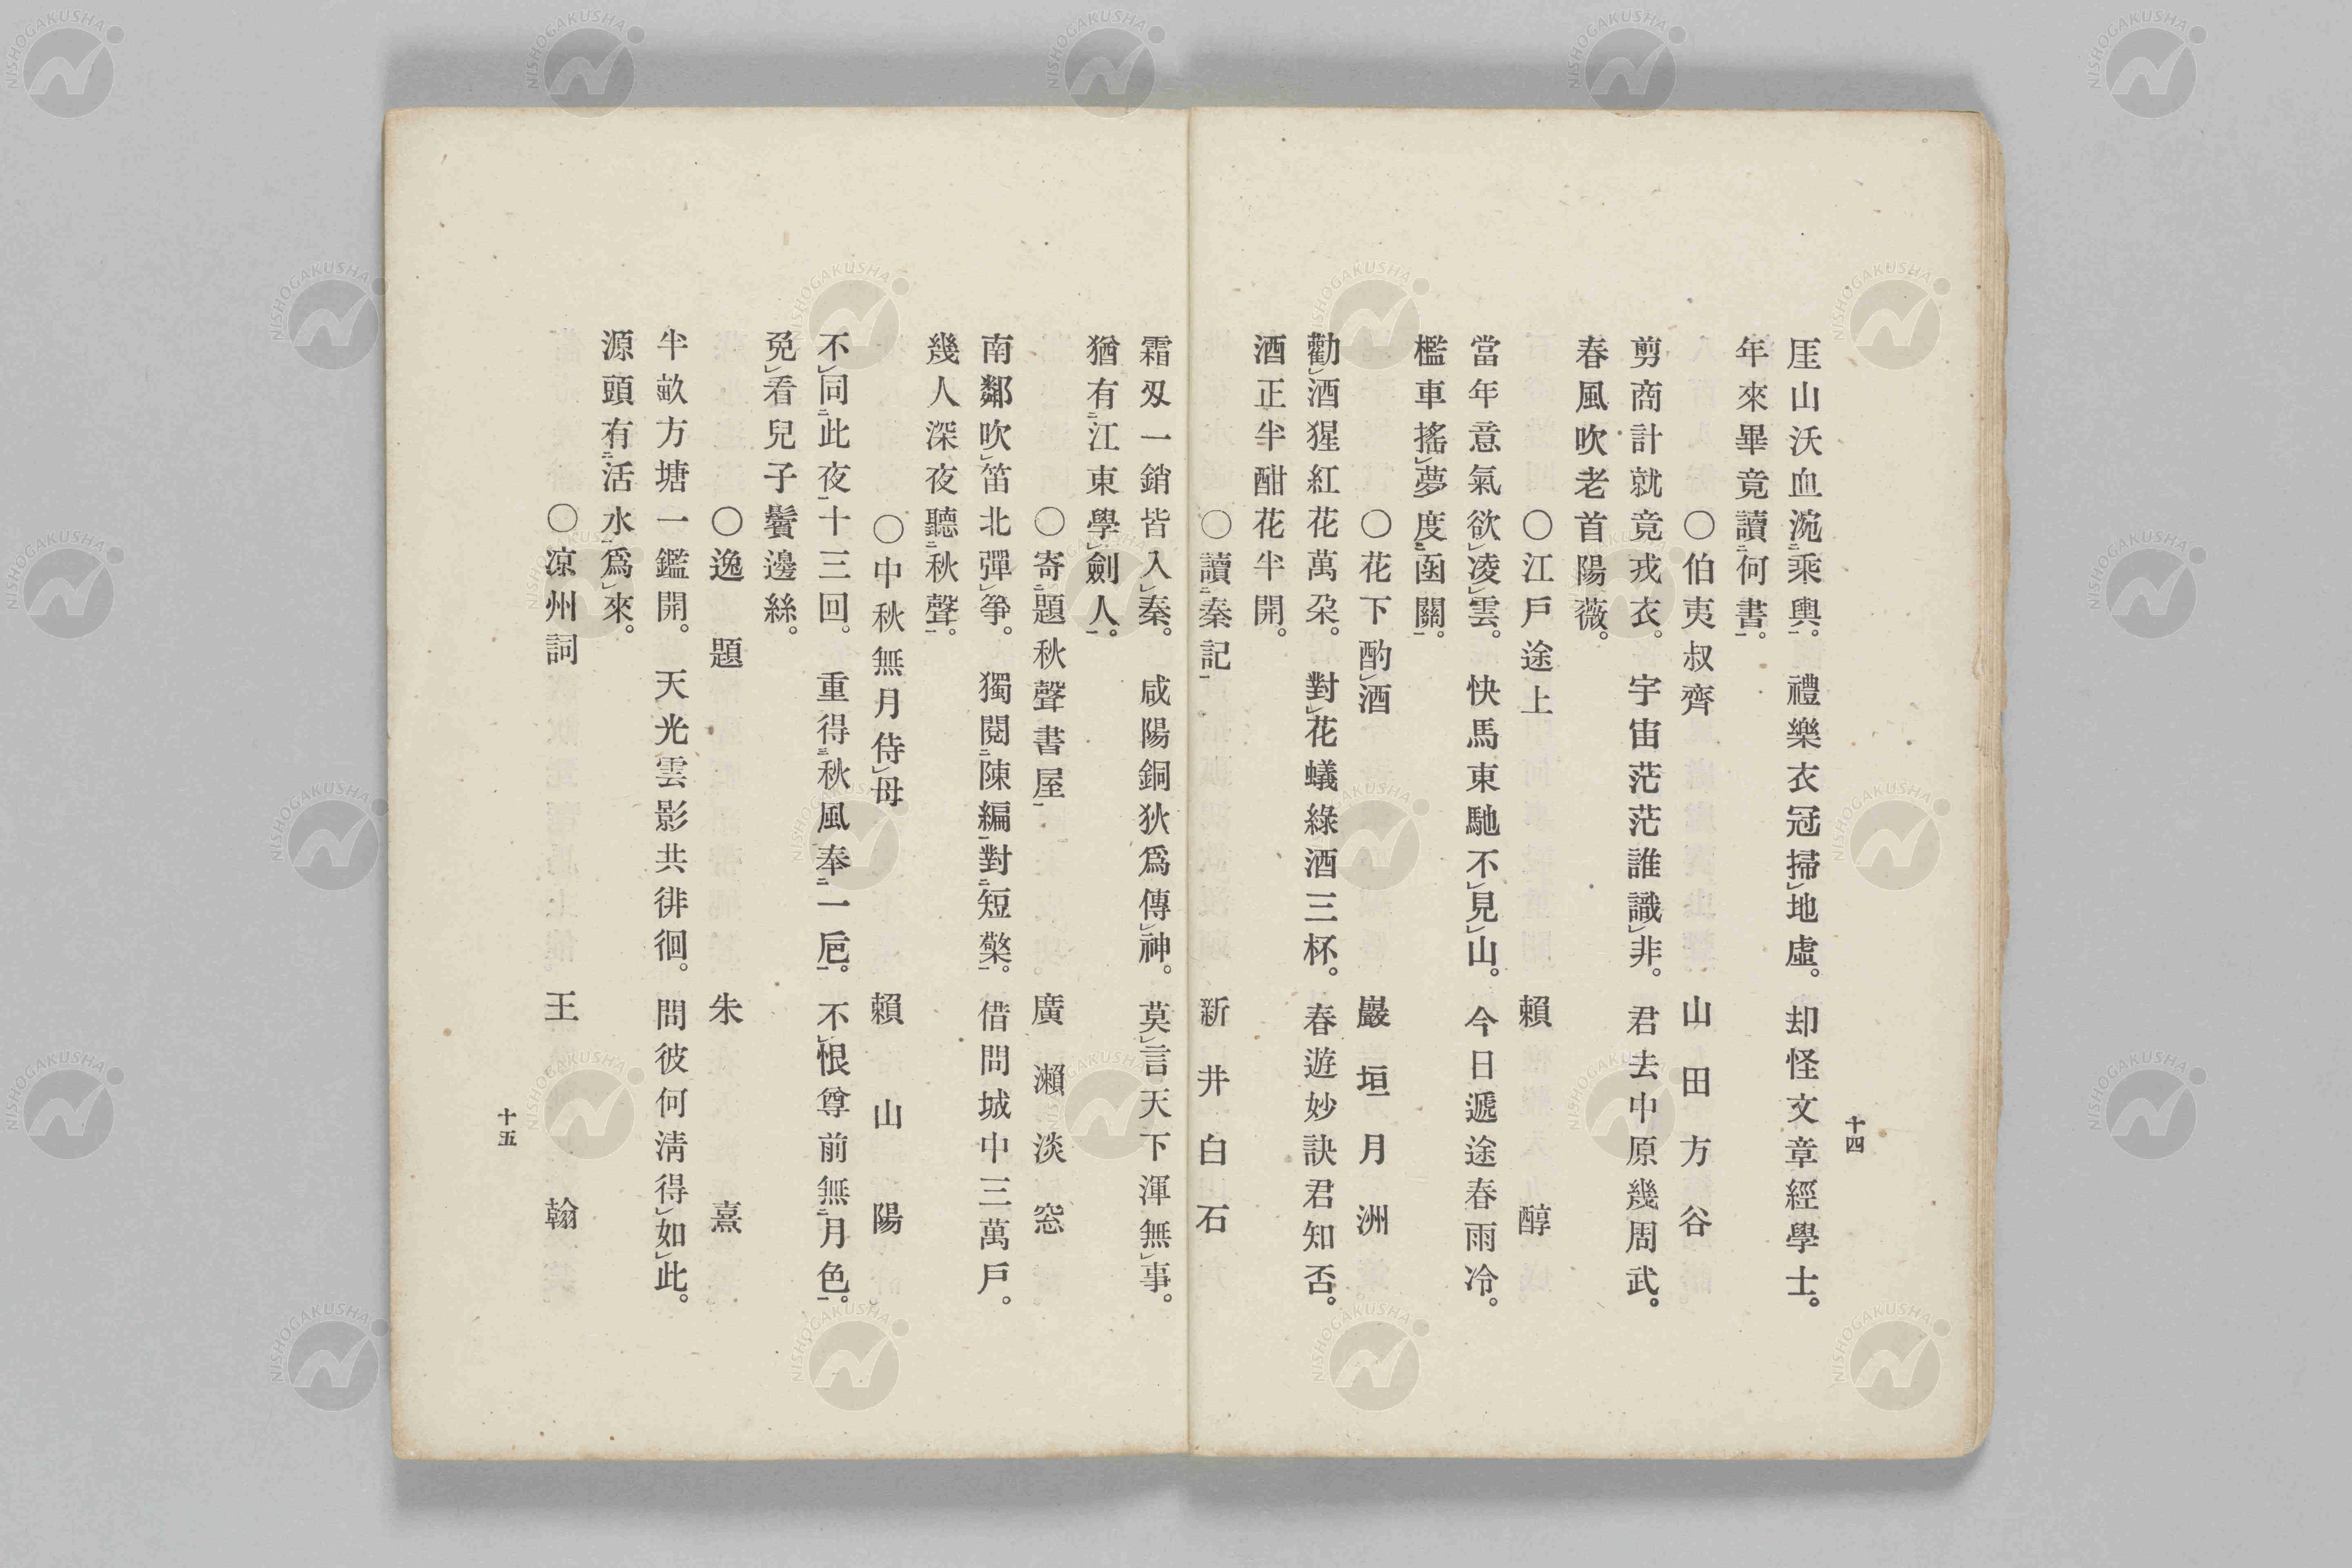 十四
厓山沃血涴乘輿。禮樂衣冠掃地虛。却怪文章經學士。
年來畢竟讀何書。
〇伯夷叔齊 山田方谷
剪商計就竟戎衣。宇宙茫茫誰識非。君去中原幾周武。
春風吹老首陽薇。
〇江戶途上 賴醇
當年意氣欲凌雲。快馬東馳不見山。今日遞途春雨冷。
檻車搖夢度函關。
〇花下酌酒 巖垣月洲
勸酒猩紅花萬朶。對花蟻綠酒三杯。春遊妙訣君知否。
酒正半酣花半開。
〇讀秦記 新井白石
霜刄一銷皆入秦。咸陽銅狄爲傳神。莫言天下渾無事。
猶有江東學劍人。
〇寄題秋聲書屋 廣瀨淡窓
南鄰吹笛北彈箏。獨閱陳編對短檠。借問城中三萬戶。
幾人深夜聽秋聲。
〇中秋無月侍母 賴山陽
不同此夜十三回。重得秋風奉一巵。不恨尊前無月色。
免看兒子鬢邊絲。
〇逸題 朱熹
半畝方塘一鑑開。天光雲影共徘徊。問彼何淸得如此。
源頭有活水爲來。
〇凉州詞 王翰
十五
NISHOGAKUSHA